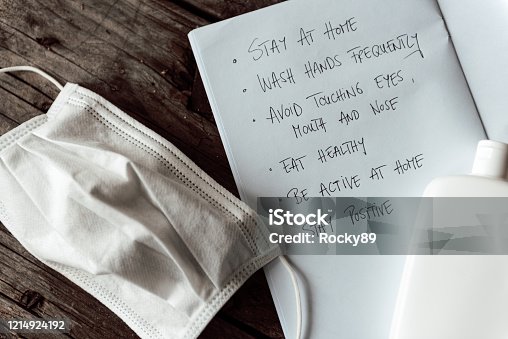 • STAY AT HOME
• WASH HANDS FREQUENTLY
• AVOID TOUCHING EYES,
MOUTH AND NOSE
• EAT HEALTHY
• BE ACTIVE AT HOME
iStock
STAY POSITIVE
Credit: Rocky89
1214924192